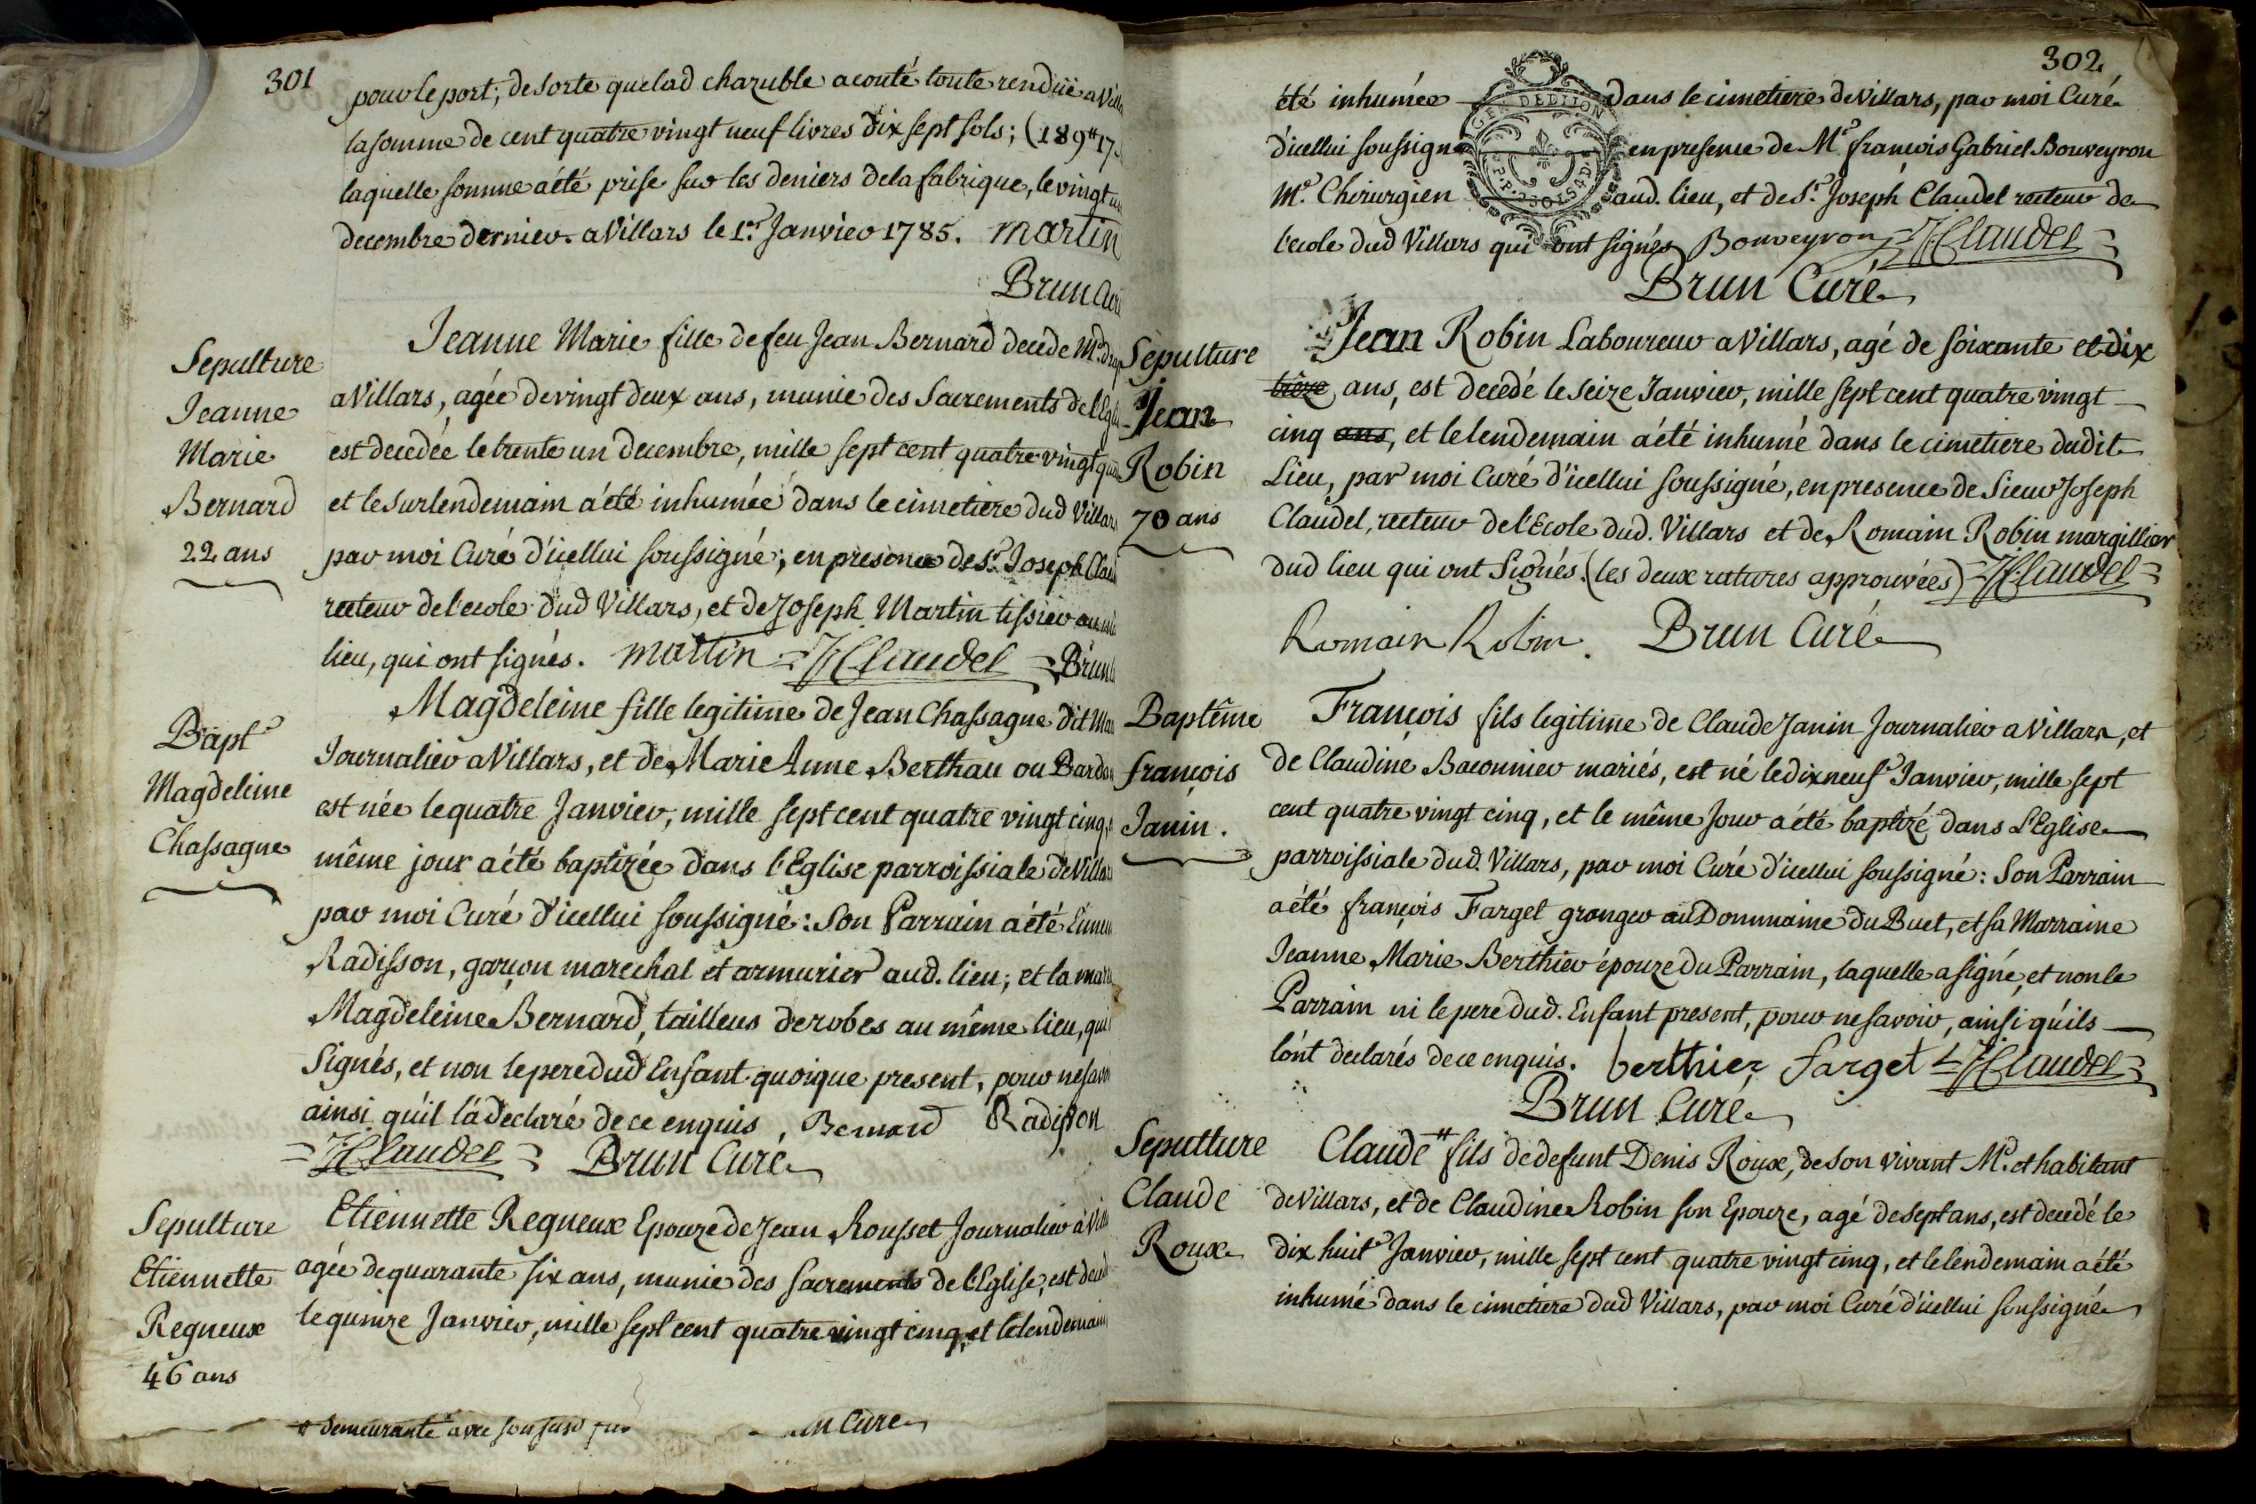 301
pour le port; de sorte que lad chazuble a couté toute renduë a
la somme de cent quatre vingt neuf livres dix sept sols; (189# 17
laquelle somme a été prise sur les deniers de la fabrique, le vingt
decembre dernier. a Villars le 1er Janvier 1785. martin
Brun
Sepulture
Jeanne
Marie
Bernard
22 ans
Jeanne Marie fille de feu Jean Bernard decede Md
a Villars, agée de vingt deux ans, munie des Sacrements de
est decedée le trente un decembre, mille sept cent quatre vingt
et le surlendemain a été inhumée dans le cimetiere dud Villars
par moi Curé d'icellui soussigné; en presence de Sr. Joseph
recteur de l'ecole dud Villars, et de Joseph Martin tissier au
lieu, qui ont signés. martin JClaudel Brun
Bapt.e
Magdeleine
Chassagne
Magdeleine fille legitime de Jean Chassagne dit
Journalier a Villars, et de Marie Anne Berthau ou
est née le quatre Janvier, mille sept cent quatre vingt cinq,
même jour a été baptizée dans l'Eglise parroissiale de
par moi Curé d'icellui soussigné: Son Parrain a été
Radisson, garçon marechal et armurier aud. lieu; et la
Magdeleine Bernard, tailleus de robes au même lieu, qui
Signés, et non le pere dud Enfant quoique present, pour
ainsi qu'il l'a declaré de ce enquis, Bernard Radisson
JClaudel Brun Curé
Sepulture
Etiennette
Regneux
46 ans
Etiennette Regneux Epouze de Jean Rousset Journalier à
agée de quarante six ans, munie des sacrements de l'Eglise, est
le quinze Janvier, mille sept cent quatre vingt cinq, et le lendemain
# demeurante avec son Curé
302
été inhumée dans le cimetiere de Villars, par moi Curé
d'icellui soussigné en presence de Me françois Gabriel Bonveyron
Me. Chirurgien aud. lieu, et de Sr. Joseph Claudel recteur de
l'ecole dud Villars qui ont signés Bonveyron JClaudel
Brun Curé
GEN DE DIJON
Sepulture
Jean
Robin
70 ans
Jean Robin Laboureur a Villars, agé de soixante et dix
treze ans, est decedé le seize Janvier, mille sept cent quatre vingt
cinq ans, et le lendemain a été inhumé dans le cimetiere dudit
Lieu, par moi Curé d'icellui soussigné, en presence de Sieur Joseph
Claudel, recteur de l'Ecole dud. Villars et de Romain Robin margillier
dud lieu qui ont Signés. (les deux ratures approuvées) JClaudel
Romain Robin. Brun Curé
Baptême
françois
Janin.
François fils legitime de Claude Janin Journalier a Villars, et
de Claudine Baconnier mariés, est né le dix neuf Janvier, mille sept
cent quatre vingt cinq, et le même Jour a été baptizé dans L'Eglise
parroissiale dud. Villars, par moi Curé d'icellui soussigné: Son Parrain
a été françois Farget granger au Dommaine du Buet, et sa Marraine
Jeanne Marie Berthier épouze du Parrain, laquelle a signé, et non le
Parrain ni le pere dud. Enfant present, pour ne savoir, ainsi qu'ils
l'ont declarés de ce enquis. berthier farget JClaudel
Brun Curé
Sepulture
Claude
Roux
Claude # fils de defunt Denis Roux, de son vivant Md. et habitant
de Villars, et de Claudine Robin son Epouze, agé de sept ans, est decedé le
dix huit Janvier, mille sept cent quatre vingt cinq, et le lendemain a été
inhumé dans le cimetiere dud Villars, par moi Curé d'icellui soussigné